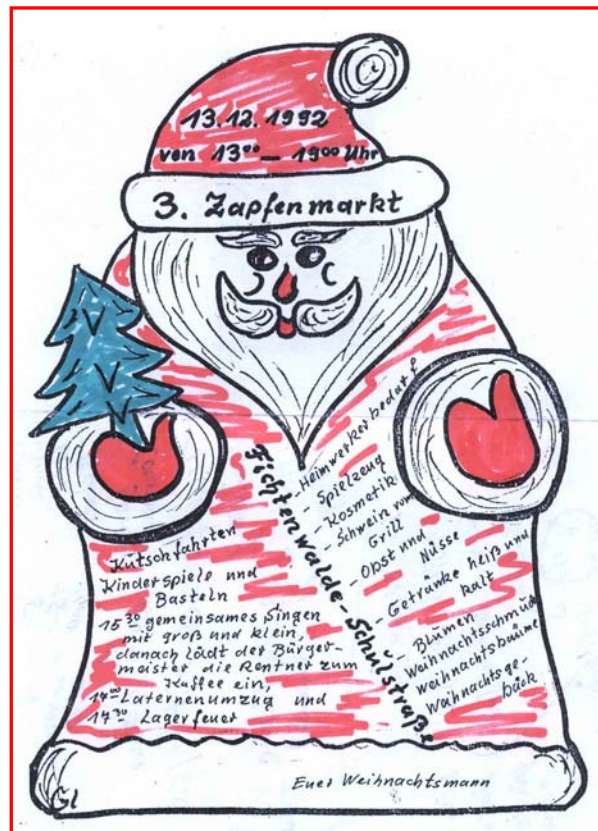 13.12.1992
von 13⁰⁰ – 19⁰⁰ Uhr
3. Zapfenmarkt
Fichtenwalde-Schulstraße
Kutschfahrten
Kinderspiele und
Basteln
15³⁰ gemeinsames Singen
mit groß und klein,
danach lädt der Bürger-
meister die Rentner zum
Kaffee ein,
17⁰⁰ Laternenumzug und
17³⁰ Lagerfeuer
- Heimwerkerbedarf
- Spielzeug
- Kosmetik
- Schwein vom
Grill
- Obst und
Nüsse
- Getränke heiß und
kalt
- Blumen
Weihnachtsschmuck
Weihnachtsbäume
Weihnachtsge-
bäck
Euer Weihnachtsmann
Gl